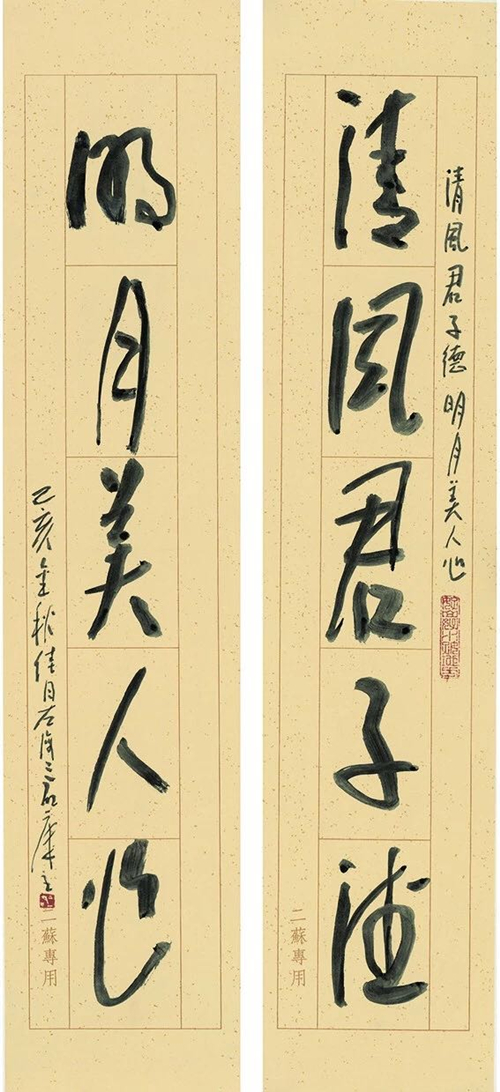 清風君子德明月美人心
清風君子德
二蘇專用
明月美人心
己亥金秋佳日
二蘇專用